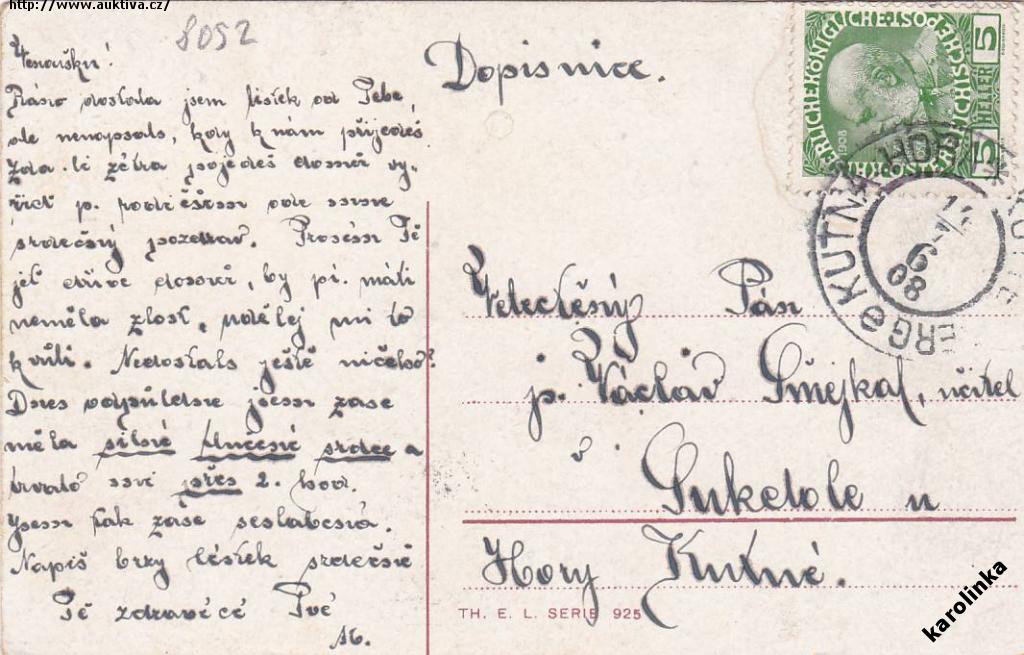 http://www.auktiva.cz/
8052
Venoušku!
Ráno dostala jsem lístek od Tebe,
ale nenapsals, kdy k nám přijedeš
Zda-li zítra pojedeš domů vy-
řiď p. rodičům ode mne
srdečný pozdrav. Prosím Tě
jeď dříve domů, by pí. máti
neměla zlost, udělej mi to
k vůli. Nedostals ještě ničeho?
Dnes odpůldne jsem zase
měla silné tlučení srdce a
trvalo mi přes 2. hod.
Jsem tak zase seslabená.
Napiš brzy lístek srdečně
Tě zdravící Tvé
M.
Dopisnice.
Veledůstojný Pán
p. Václav Smejkal, učitel
v Sukdole u
Hory Kutné.
TH. E. L. SERIE 925
KAISERLICHE KÖNIGLICHE ÖSTERREICHISCHE POST
5 HELLER 5
1908
KUTNÁ HORA
KUTTENBERG
14
6
08
karolinka